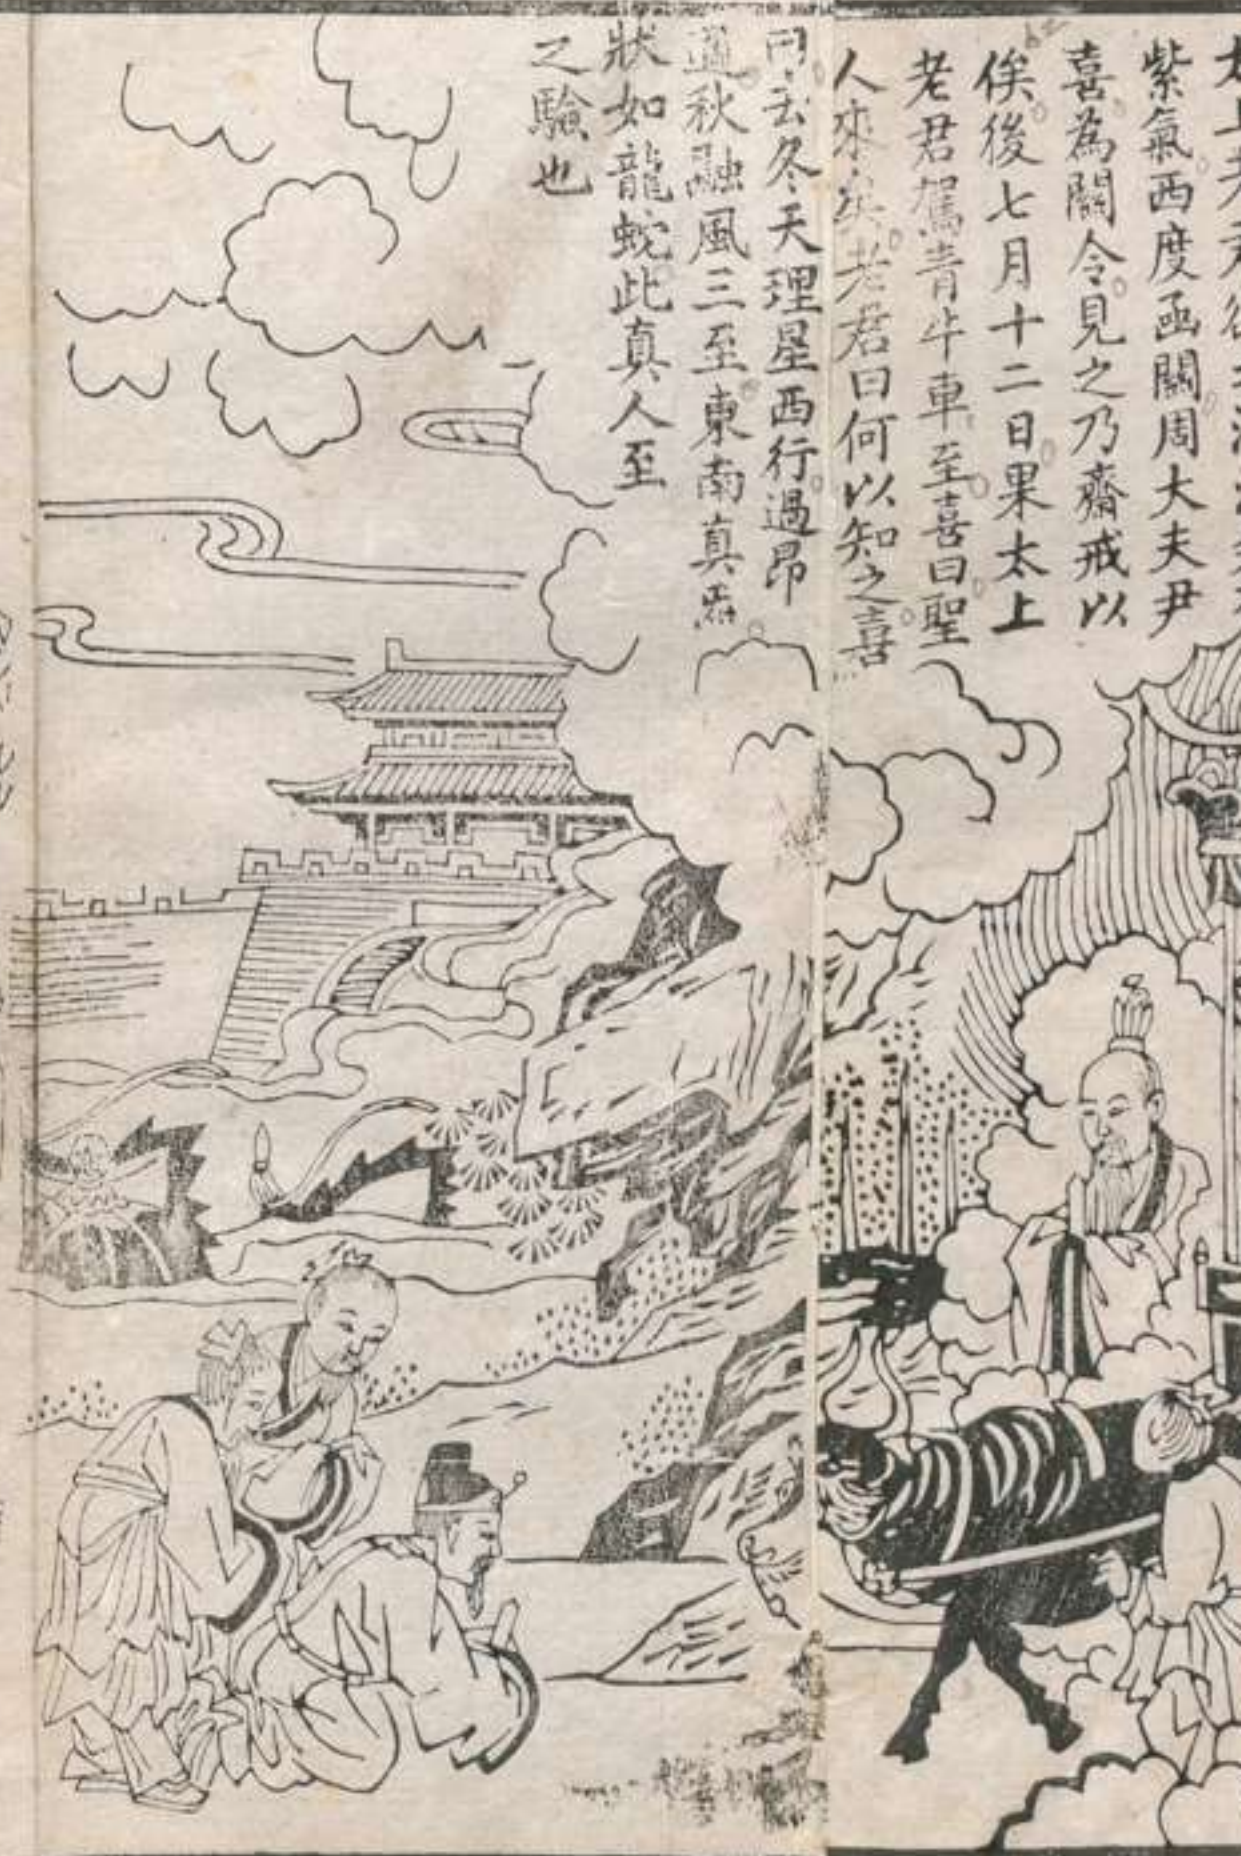 紫氣西度函關周大夫尹
喜為關令見之乃齋戒以
俟後七月十二日果太上
老君駕青牛車至喜曰聖
人來矣老君曰何以知之喜
云冬天理星西行過昴
秋融風三至東南真炁
狀如龍蛇此真人至
之驗也